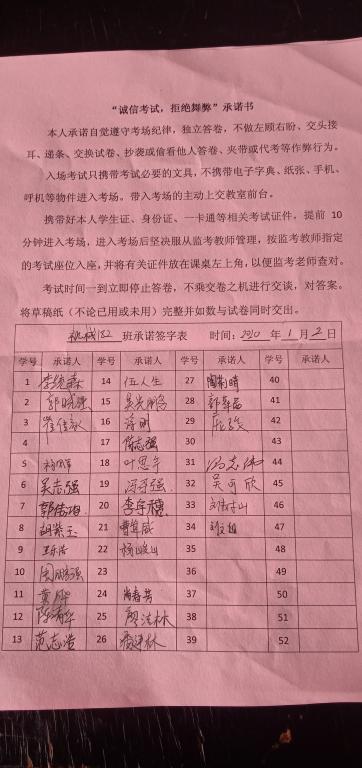 “诚信考试，拒绝舞弊”承诺书
本人承诺自觉遵守考场纪律，独立答卷，不做左顾右盼、交头接
耳、递条、交换试卷、抄袭或偷看他人答卷、夹带或代考等作弊行为。
入场考试只携带考试必要的文具，不携带电子字典、纸张、手机、
呼机等物件进入考场。带入考场的主动上交教室前台。
携带好本人学生证、身份证、一卡通等相关考试证件，提前 10
分钟进入考场，进入考场后坚决服从监考教师管理，按监考教师指定
的考试座位入座，并将有关证件放在课桌左上角，以便监考老师查对。
考试时间一到立即停止答卷，不乘交卷之机进行交谈，对答案。
将草稿纸（不论已用或未用）完整并如数与试卷同时交出。
机械182 班承诺签字表 时间：2020 年 1 月 2 日
学号 承诺人 学号 承诺人 学号 承诺人 学号 承诺人
1 14 伍人生 27 陶菊晴 40
2 郭晓强 15 吴光鹏 28 41
3 16 蒋明 29 42
4 17 陈志强 30 43
5 18 叶思年 31 冯志伟 44
6 吴志强 19 32 吴可欣 45
7 20 李宇穗 33 46
8 胡紫玉 21 曹宜威 34 47
9 22 35 48
10 周鹏强 23 36 49
11 24 37 50
12 陈清华 25 廖法林 38 51
13 范志浩 26 39 52